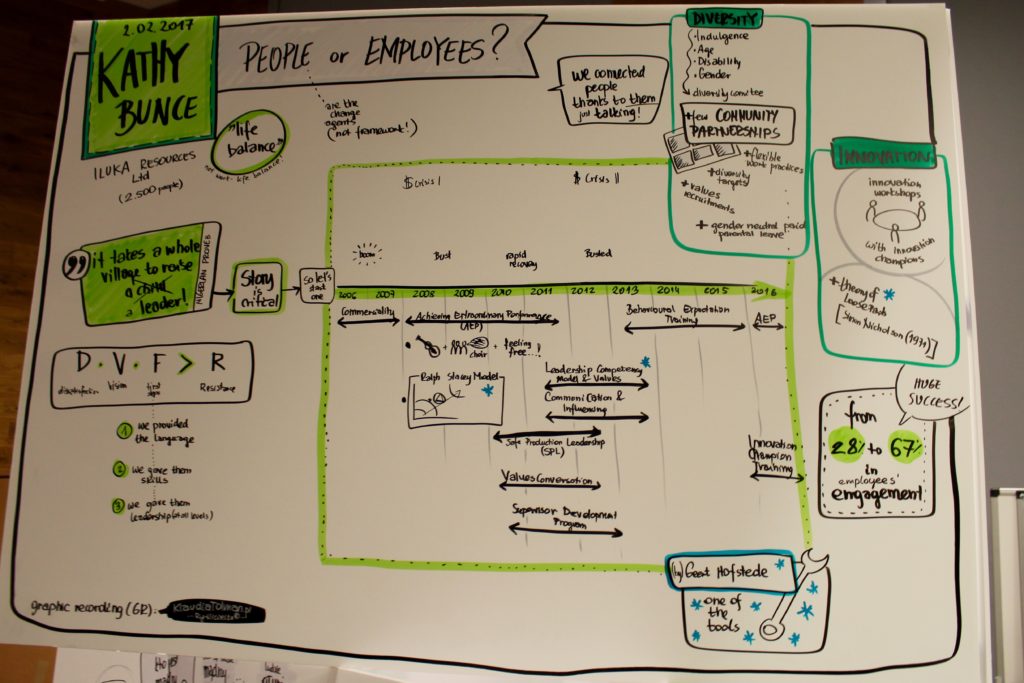 2.02.2017
KATHY
BUNCE
PEOPLE or EMPLOYEES?
are the
change
agents
(not framework!)
"life
balance"
not work-life balance!
ILUKA RESOURCES
Ltd
(2.500 people)
we connected
people
thanks to them
just talking!
DIVERSITY
• Indulgence
• Age
• Disability
• Gender
diversity comitee
+ few COMMUNITY
PARTNERSHIPS
+ flexible
work practices
+ diversity
targets
+ values
recruitments
+ gender neutral paid
parental leave
INNOVATION
innovation
workshops
with innovation
champions
+ theory of
loose parts
[Simon Nicholson (1971)]
"it takes a whole
village to raise
a child
a leader!
NIGERIAN PROVEB
Story
is
critical
So let's
start
one
$ Crisis I
$ Crisis II
boom
Bust
rapid
recovery
Busted
2006 2007 2008 2009 2010 2011 2012 2013 2014 2015 2016
Commerciality
Achieving Extraordinary Performance
(AEP)
Behavioural Expectation
Training
AEP
+ choir + feeling
free...!
Ralph Stacey Model
Leadership Competency
Model & Values
Communication &
Influencing
Safe Production Leadership
(SPL)
Values Conversation
Supervisor Development
Program
Innovation
Champion
Training
D • V • F > R
dissatisfaction vision first
steps Resistance
1 we provided
the language
2 we gave them
skills
3 we gave them
leadership (of all levels)
HUGE
SUCCESS!
from
28% to 67%
in
employees'
engagement
(by) Geert Hofstede
one of
the
tools
graphic recording (GR): KlaudiaTolman.pl